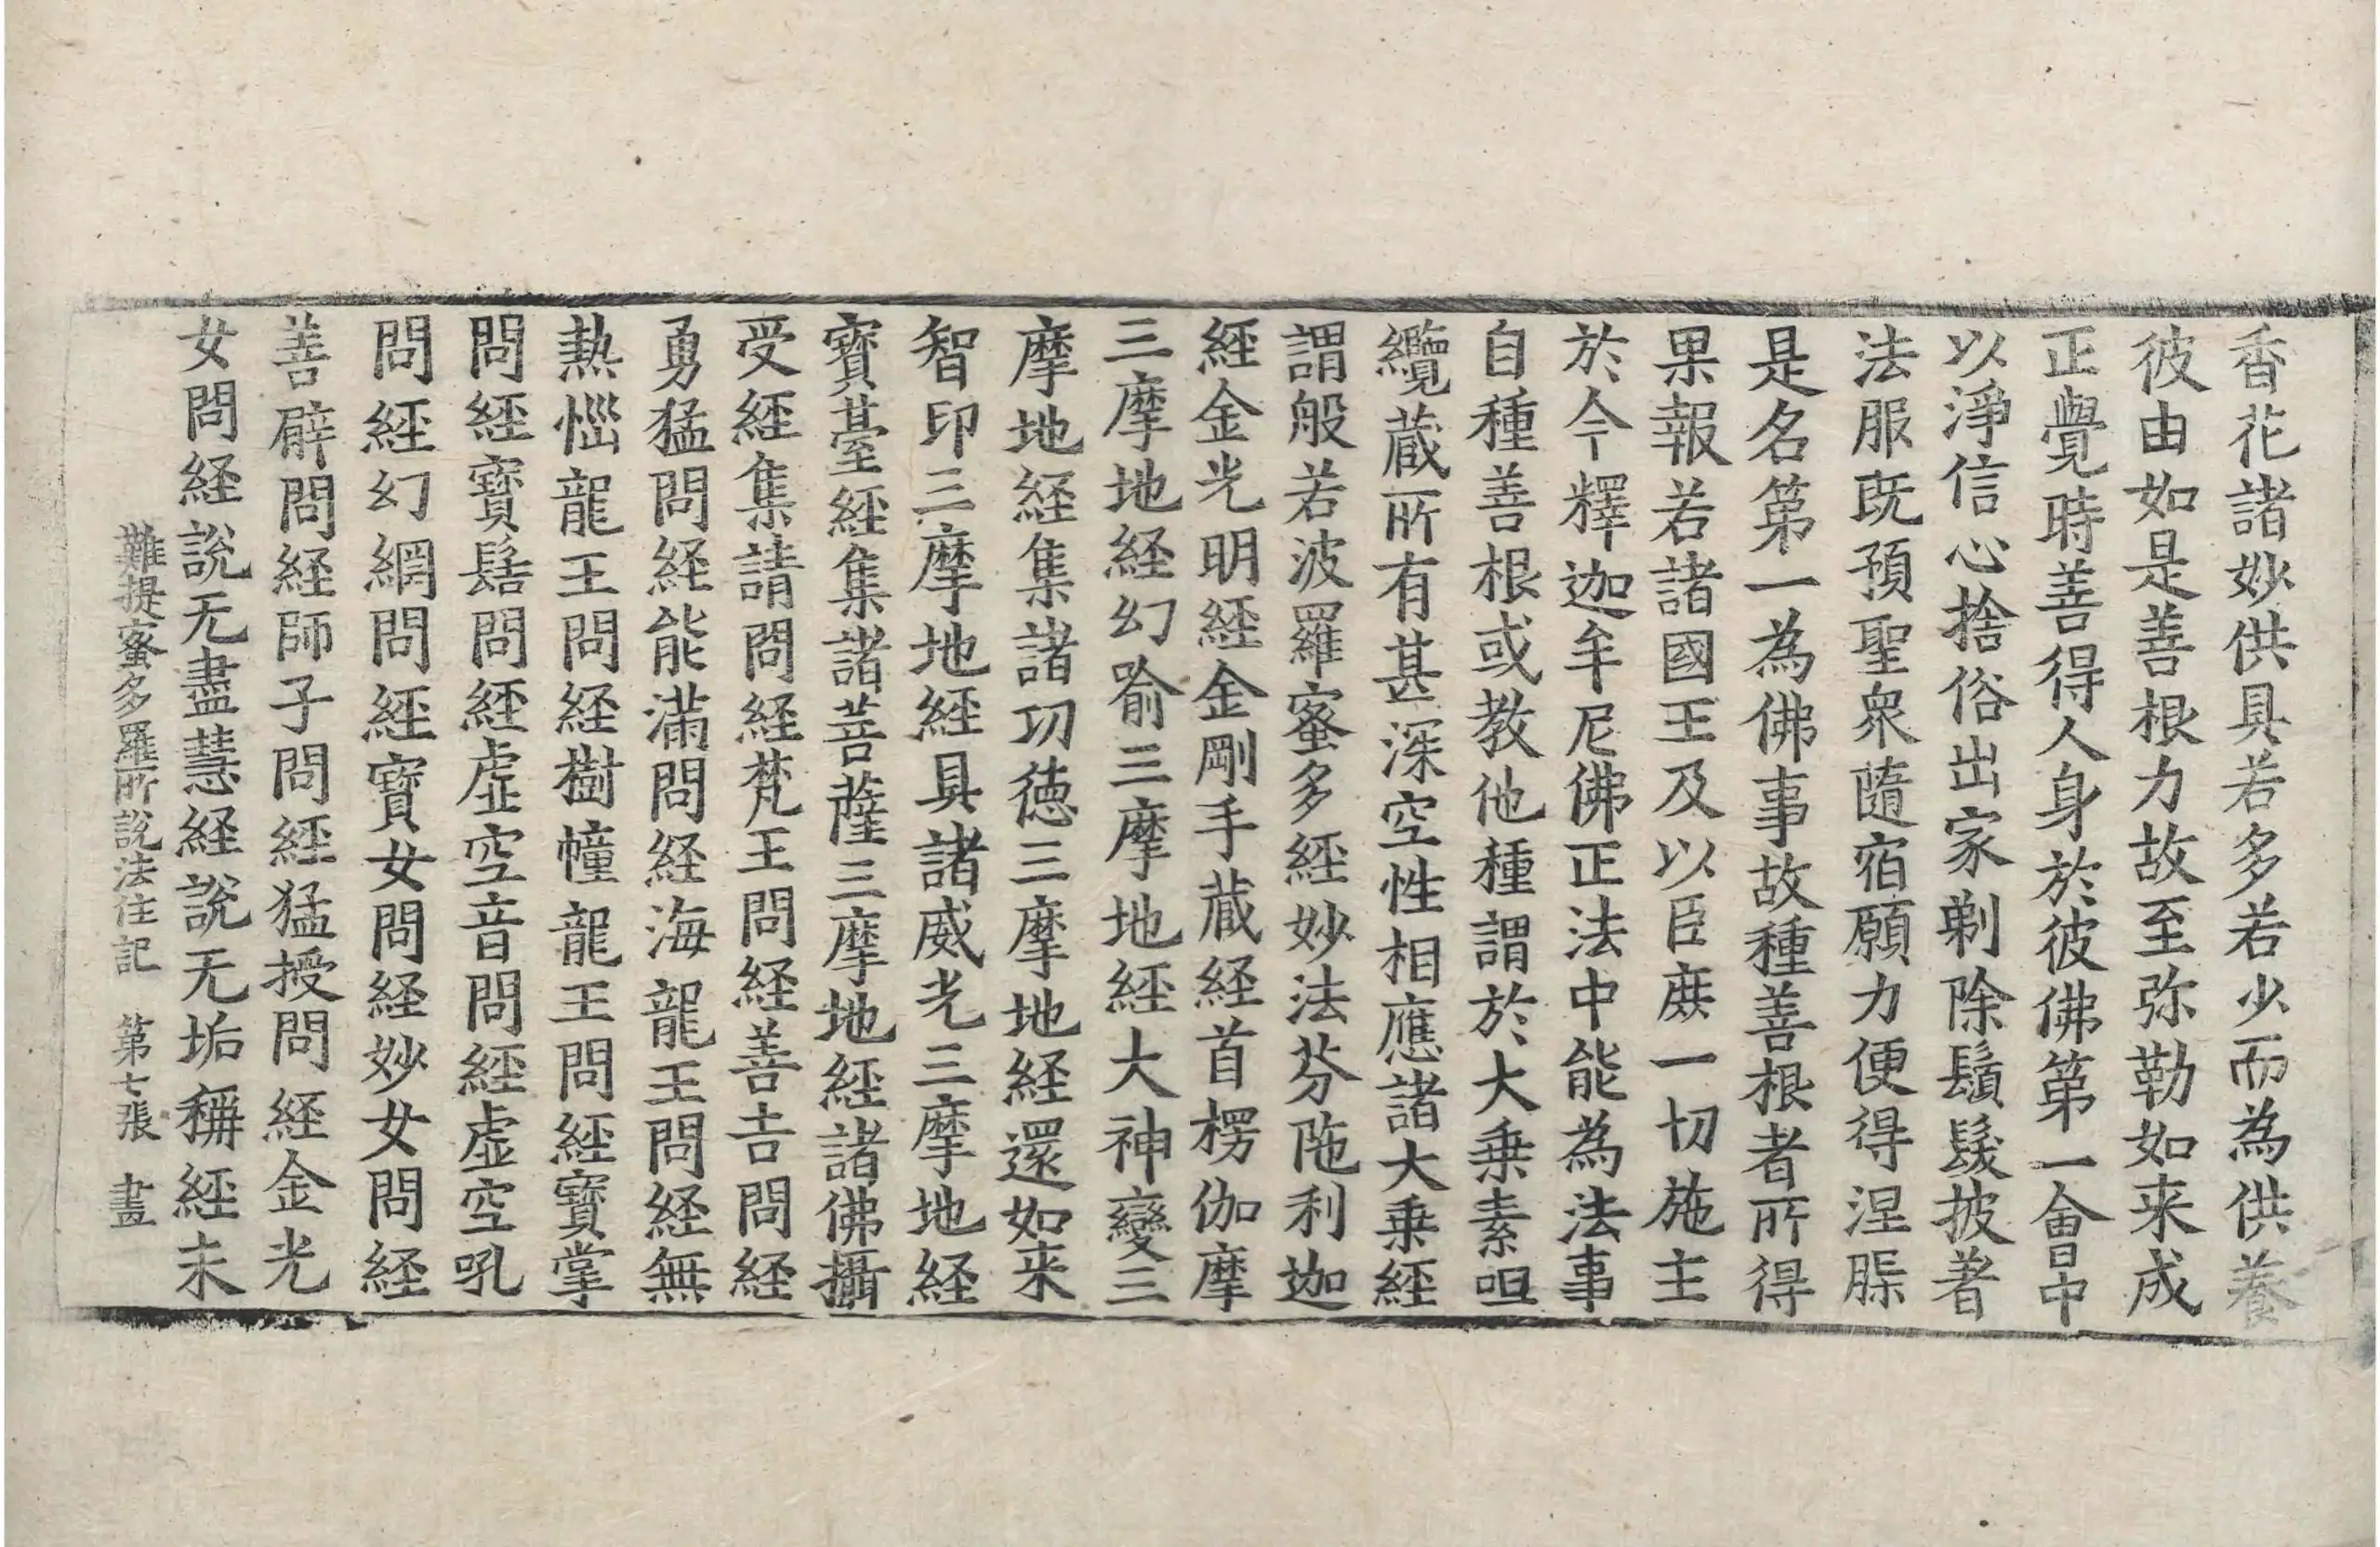 香花諸妙供具若多若少而為供養
彼由如是善根力故至弥勒如来成
正覺時善得人身於彼佛第一會中
以淨信心捨俗出家剃除鬚髮披著
法服既預聖衆隨宿願力便得涅槃
是名第一為佛事故種善根者所得
果報若諸國王及以臣庶一切施主
於今釋迦牟尼佛正法中能為法事
自種善根或教他種謂於大乗素呾
纜蔵所有甚深空性相應諸大乗經
謂般若波羅蜜多經妙法芬陁利迦
經金光明經金剛手蔵経首楞伽摩
三摩地経幻喻三摩地經大神變三
摩地経集諸功徳三摩地経還如来
智印三摩地經具諸威光三摩地経
寳臺経集諸菩薩三摩地經諸佛攝
受経集請問経梵王問経善吉問経
勇猛問経能滿問経海龍王問経無
熱惱龍王問経樹幢龍王問經寳掌
問経寳髻問經虚空音問經虚空吼
問経幻網問經寳女問経妙女問経
善臂問経師子問經猛授問経金光
女問経說无盡慧経說无垢稱經未
難提蜜多羅所說法住記　第七張　畫